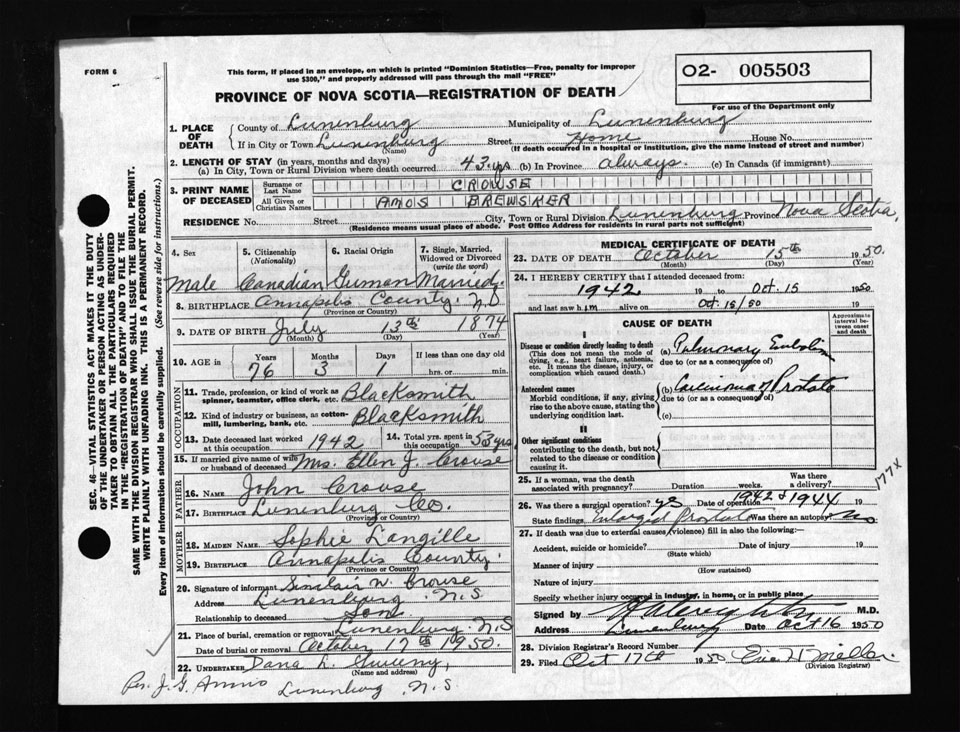 FORM 6
This form, if placed in an envelope, on which is printed "Dominion Statistics—Free, penalty for improper
use $300," and properly addressed will pass through the mail "FREE"
O2- 005503
For use of the Department only
PROVINCE OF NOVA SCOTIA—REGISTRATION OF DEATH
1. PLACE OF DEATH
County of Lunenburg Municipality of Lunenburg
If in City or Town Lunenburg Street Home House No.
(Name) (If death occurred in a hospital or institution, give the name instead of street and number)
2. LENGTH OF STAY (in years, months and days)
(a) In City, Town or Rural Division where death occurred 43 yrs (b) In Province always. (c) In Canada (if immigrant)
3. PRINT NAME OF DECEASED
Surname or Last Name CROUSE
All Given or Christian Names AMOS BREWSKER
RESIDENCE No. Street City, Town or Rural Division Lunenburg Province Nova Scotia,
(Residence means usual place of abode. Post Office Address for residents in rural parts not sufficient)
4. Sex 5. Citizenship (Nationality) 6. Racial Origin 7. Single, Married, Widowed or Divorced (write the word)
Male Canadian German Married.
8. BIRTHPLACE Annapolis County. N.S
(Province or Country)
9. DATE OF BIRTH July 13th 1874
(Month) (Day) (Year)
10. AGE in Years Months Days If less than one day old
76 3 1 hrs. or min.
OCCUPATION
11. Trade, profession, or kind of work as spinner, teamster, office clerk, etc. Blacksmith
12. Kind of industry or business, as cotton-mill, lumbering, bank, etc. Blacksmith
13. Date deceased last worked at this occupation 1942 14. Total yrs. spent in this occupation 53 yrs
15. If married give name of wife or husband of deceased Mrs. Ellen J. Crouse
FATHER
16. NAME John Crouse
17. BIRTHPLACE Lunenburg Co.
(Province or Country)
MOTHER
18. MAIDEN NAME Sophie Langille
19. BIRTHPLACE Annapolis County.
(Province or Country)
20. Signature of informant Sinclair W. Crouse
Address Lunenburg N.S
Relationship to deceased Son.
21. Place of burial, cremation or removal Lunenburg. N.S
Date of burial or removal October 17th 1950.
22. UNDERTAKER Dana L. Sweeny,
(Name and address)
Per. J. G. Lunenburg N.S.
MEDICAL CERTIFICATE OF DEATH
23. DATE OF DEATH October 15th 1950.
(Month) (Day) (Year)
24. I HEREBY CERTIFY that I attended deceased from
1942 19 to Oct. 15 1950
and last saw him alive on Oct. 15/50
CAUSE OF DEATH
Approximate interval between onset and death
I
Disease or condition directly leading to death
(This does not mean the mode of dying, e.g., heart failure, asthenia, etc. It means the disease, injury, or complication which caused death.)
(a) Pulmonary Embolism
due to (or as a consequence of)
Antecedent causes
Morbid conditions, if any, giving rise to the above cause, stating the underlying condition last.
(b) Carcinoma of Prostate
due to (or as a consequence of)
(c)
II
Other significant conditions
contributing to the death, but not related to the disease or condition causing it.
25. If a woman, was the death associated with pregnancy? Duration weeks. Was there a delivery?
177X
26. Was there a surgical operation? yes Date of operation 1942 & 1944 19
State findings Enlarged Prostate Was there an autopsy no
27. If death was due to external causes (violence) fill in also the following:
Accident, suicide or homicide? Date of injury 19
(State which)
Manner of injury
(How sustained)
Nature of injury
Specify whether injury occurred in industry, in home, or in public place
Signed by M.D.
Address Lunenburg Date Oct 16 1950
28. Division Registrar's Record Number
29. Filed Oct 17th 1950
(Division Registrar)
SEC. 46—VITAL STATISTICS ACT MAKES IT THE DUTY
OF THE UNDERTAKER OR PERSON ACTING AS UNDER-
TAKER TO OBTAIN ALL THE PARTICULARS REQUIRED
IN THE "REGISTRATION OF DEATH" AND TO FILE THE
SAME WITH THE DIVISION REGISTRAR WHO SHALL ISSUE THE BURIAL PERMIT.
WRITE PLAINLY WITH UNFADING INK. THIS IS A PERMANENT RECORD.
Every item of information should be carefully supplied. (See reverse side for instructions.)